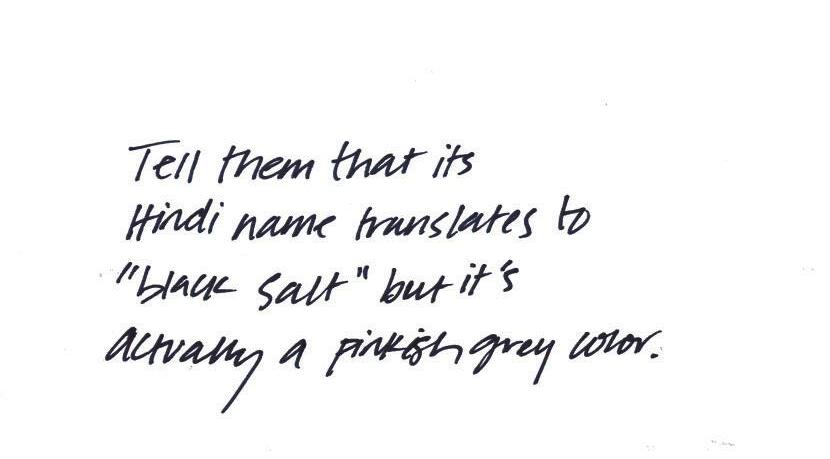 Tell them that its
Hindi name translates to
"black salt" but it's
actually a pinkish grey color.